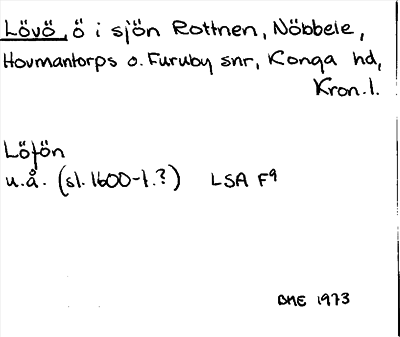 Lövö, ö i sjön Rottnen, Nöbbele,
Hovmantorps o. Furuby snr, Konga hd,
Kron.l.
Löfön
u.å. (sl. 1600-t.?) LSA F9
BME 1973